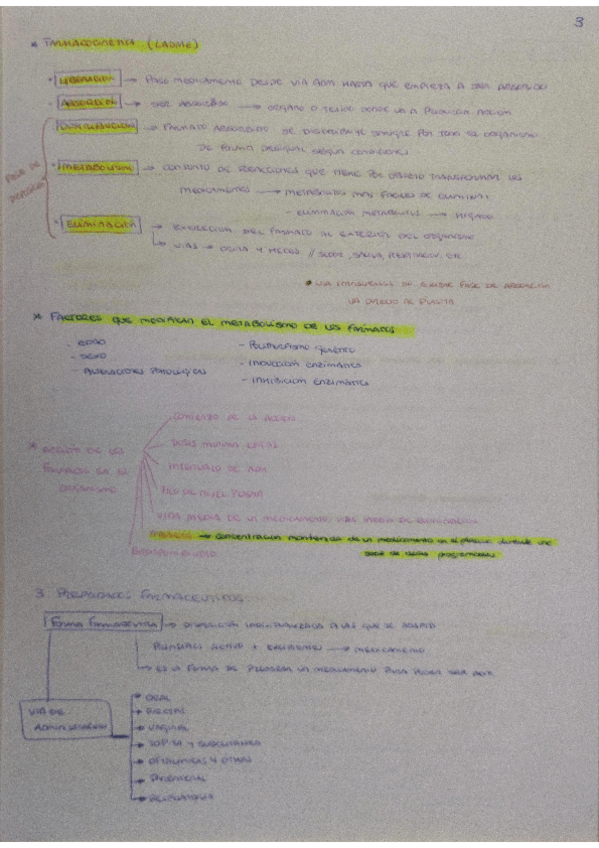 3
* FARMACOCINETICA (LADME)
· LIBERACIÓN → PASE MEDICAMENTO DESDE VIA ADM HASTA QUE EMPIEZA A SER ABSORBIDO
· ABSORCIÓN → SER ABSORBIDO → ORGANO O TEJIDO DONDE VA A PRODUCIR ACCIÓN
DISTRIBUCIÓN → FARMACO ABSORBIDO SE DISTRIBUYE SIEMPRE POR TODO EL ORGANISMO
DE FORMA DESIGUAL SEGÚN CONDICIONES
FASE DE
· METABOLISMO → CONJUNTO DE REACCIONES QUE TIENE POR OBJETO TRANSFORMAR LOS
MEDICAMENTOS → METABOLITOS MAS FACILES DE ELIMINAR
- ELIMINACIÓN METABOLITOS → HIGADO
· ELIMINACIÓN → EXCRECIÓN DEL FARMACO AL EXTERIOR DEL ORGANISMO
↳ VIAS → ORINA Y HECES // SUDOR, SALIVA, RESPIRACIÓN, ETC
• VIA INTRAVENOSA NO EXISTE FASE DE ABSORCIÓN
VA DIRECTO AL PLASMA
* FACTORES QUE MODIFICAN EL METABOLISMO DE LOS FARMACOS
- EDAD
- SEXO
- ALTERACIONES PATOLOGICAS
- POLIMORFISMO GENETICO
- INDUCCIÓN ENZIMATICA
- INHIBICIÓN ENZIMATICA
* ACCIÓN DE LOS
FARMACOS EN EL
ORGANISMO
COMIENZO DE LA ACCIÓN
DOSIS MINIMA LETAL
INTERVALO DE ADM
PICO DE NIVEL PLASMA
VIDA MEDIA DE UN MEDICAMENTO: VIDA MEDIA DE ELIMINACIÓN
→ concentracion mantenida de un medicamento en el plasma durante una
serie de dosis programadas
BIODISPONIBILIDAD
3. PROPIEDADES FARMACEUTICAS
FORMA FARMACEUTICA → DISPOSICIÓN INDIVIDUALIZADA A LAS QUE SE ADAPTA
PRINCIPIOS ACTIVO + EXCIPIENTES → MEDICAMENTO
↳ ES LA FORMA DE PREPARAR UN MEDICAMENTO PARA PODER SER ADM
VIA DE
ADMINISTRACIÓN
→ ORAL
→ RECTAL
→ VAGINAL
→ TOPICA Y SUBCUTANEA
→ OFTALMICAS Y OTICAS
→ PARENTERAL
→ RESPIRATORIA